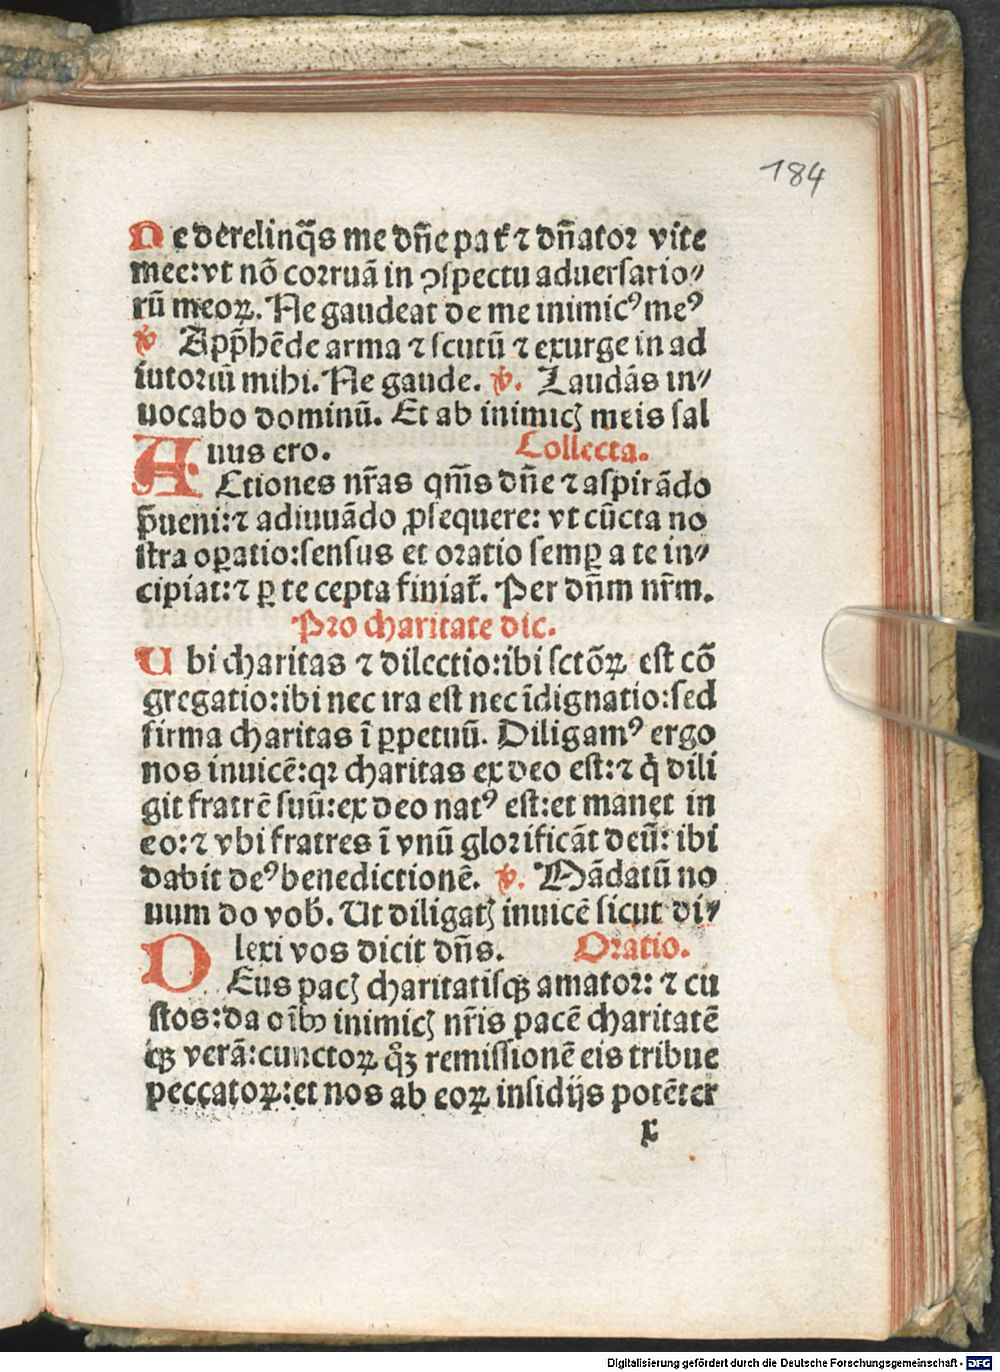 184
Ne derelinq̃s me dñe pat᷑ ⁊ dñator vite
mee:vt nõ corruã in ↄspectu aduersario⸗
rũ meoꝝ. Ne gaudeat de me inimicꝰ meꝰ
℣ Appħẽde arma ⁊ scutũ ⁊ exurge in ad
iutoriũ mihi. Ne gaude. ℣. Laudãs in⸗
uocabo dominũ. Et ab inimicꝭ meis sal
uus ero. Collecta.
ACtiones nr̃as qm̃s dñe ⁊ aspirãdo
p̃ueni:⁊ adiuuãdo ꝓsequere: vt cũcta no
stra oꝑatio:sensus et oratio semꝑ a te in⸗
cipiat:⁊ ꝑ te cepta finiat᷑. Per dñm nr̃m.
Pro charitate dic.
Ubi charitas ⁊ dilectio:ibi sctõꝝ est cõ
gregatio:ibi nec ira est nec ĩdignatio:sed
firma charitas ĩ ꝑpetuũ. Diligamꝰ ergo
nos inuicẽ:qꝛ charitas ex deo est:⁊ q̇ dili
git fratrẽ suũ:ex deo natꝰ est:et manet in
eo:⁊ vbi fratres ĩ vnũ glorificãt deũ: ibi
dabit deꝰ benedictionẽ. ℣. Mãdatũ no
uum do vob̃. Ut diligatꝭ inuicẽ sicut di⸗
lexi vos dicit dñs. Oratio.
DEus pacꝭ charitatisqꝫ amator: ⁊ cu
stos:da oĩbꝰ inimicꝭ nr̃is pacẽ charitatẽ
qꝫ verã:cunctoꝝ q̃ꝫ remissionẽ eis tribue
peccatoꝝ:et nos ab eoꝝ insidijs potẽter
x
Digitalisierung gefördert durch die Deutsche Forschungsgemeinschaft - DFG